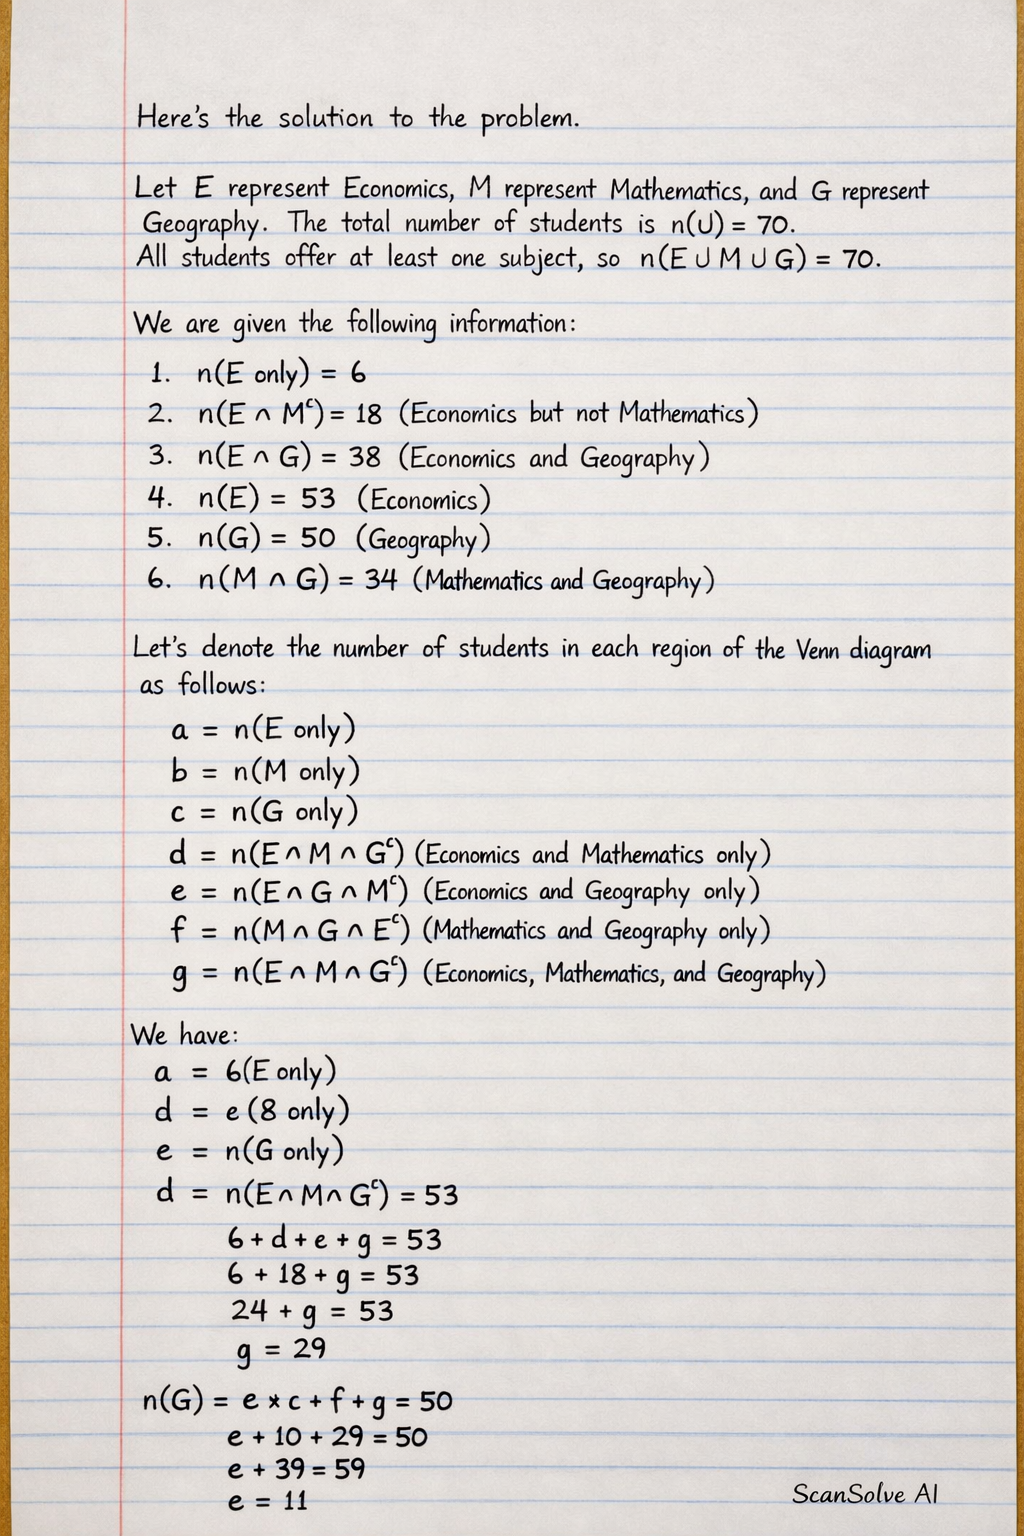 Here's the solution to the problem.
Let E represent Economics, M represent Mathematics, and G represent
Geography. The total number of students is n(U) = 70.
All students offer at least one subject, so n(E ∪ M ∪ G) = 70.
We are given the following information:
1. n(E only) = 6
2. n(E ∩ Mᶜ) = 18 (Economics but not Mathematics)
3. n(E ∩ G) = 38 (Economics and Geography)
4. n(E) = 53 (Economics)
5. n(G) = 50 (Geography)
6. n(M ∩ G) = 34 (Mathematics and Geography)
Let's denote the number of students in each region of the Venn diagram
as follows:
a = n(E only)
b = n(M only)
c = n(G only)
d = n(E ∩ M ∩ Gᶜ) (Economics and Mathematics only)
e = n(E ∩ G ∩ Mᶜ) (Economics and Geography only)
f = n(M ∩ G ∩ Eᶜ) (Mathematics and Geography only)
g = n(E ∩ M ∩ Gᶜ) (Economics, Mathematics, and Geography)
We have:
a = 6(E only)
d = e (8 only)
e = n(G only)
d = n(E ∩ M ∩ Gᶜ) = 53
6 + d + e + g = 53
6 + 18 + g = 53
24 + g = 53
g = 29
n(G) = e × c + f + g = 50
e + 10 + 29 = 50
e + 39 = 59
e = 11
ScanSolve AI